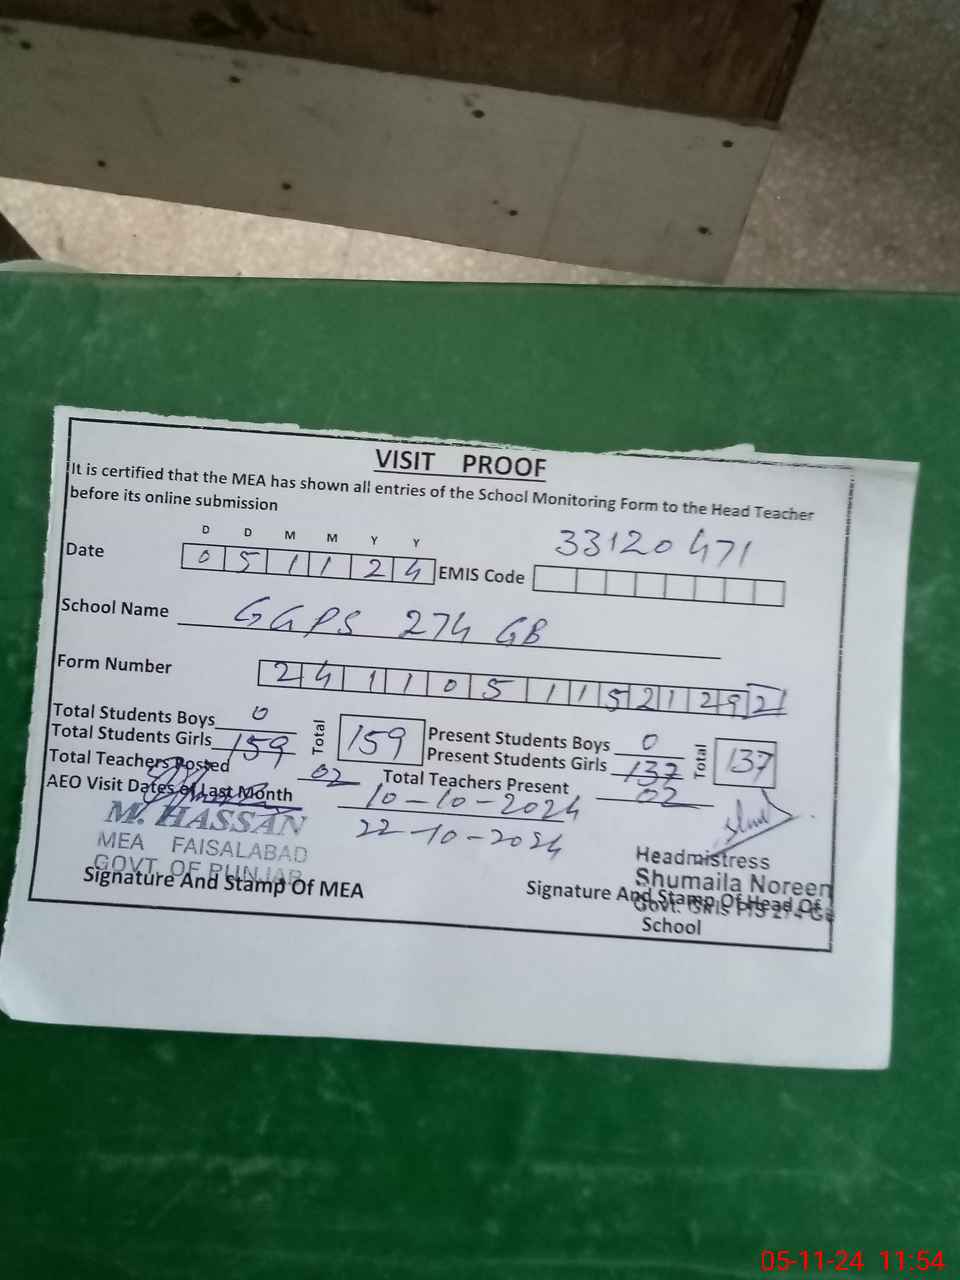 VISIT PROOF
It is certified that the MEA has shown all entries of the School Monitoring Form to the Head Teacher
before its online submission
D D M M Y Y
33120471
Date 0 5 1 1 2 4 EMIS Code
School Name GGPS 274 GB
Form Number 2 4 1 1 0 5 1 1 5 2 1 2 9 2
Total Students Boys 0 Present Students Boys 0
Total 159 Total 137
Total Students Girls 159 Present Students Girls 137
Total Teachers Posted 02 Total Teachers Present 02
AEO Visit Dates of Last Month 10-10-2024
22-10-2024
M. HASSAN
MEA FAISALABAD
GOVT. OF PUNJAB
Signature And Stamp Of MEA
Headmistress
Shumaila Noreen
Govt. Girls P/S 274 GB
Signature And Stamp Of Head Of
School
05-11-24 11:54